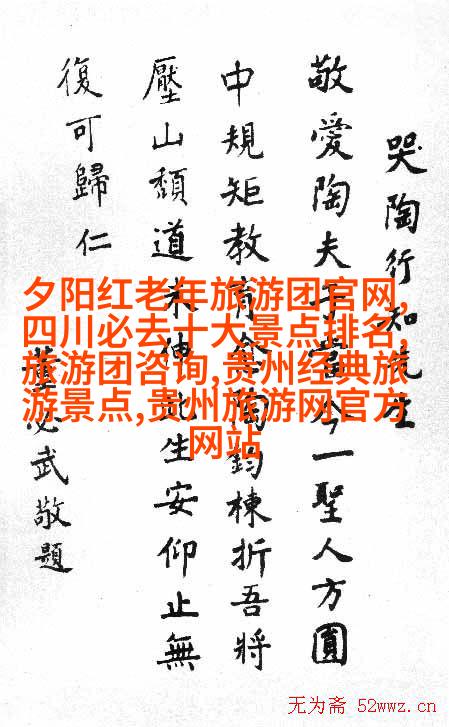 哭陶行知先生
敬愛陶夫子當今一聖人方圓
中規矩教育陶鈞棟折吾將
壓山頹道未伸此生安仰止無
復可歸仁
董必武敬題
夕阳红老年旅游团官网,
四川必去十大景点排名,
旅游团咨询,贵州经典旅
游景点,贵州旅游网官方
网站
无为斋 52wwz.cn